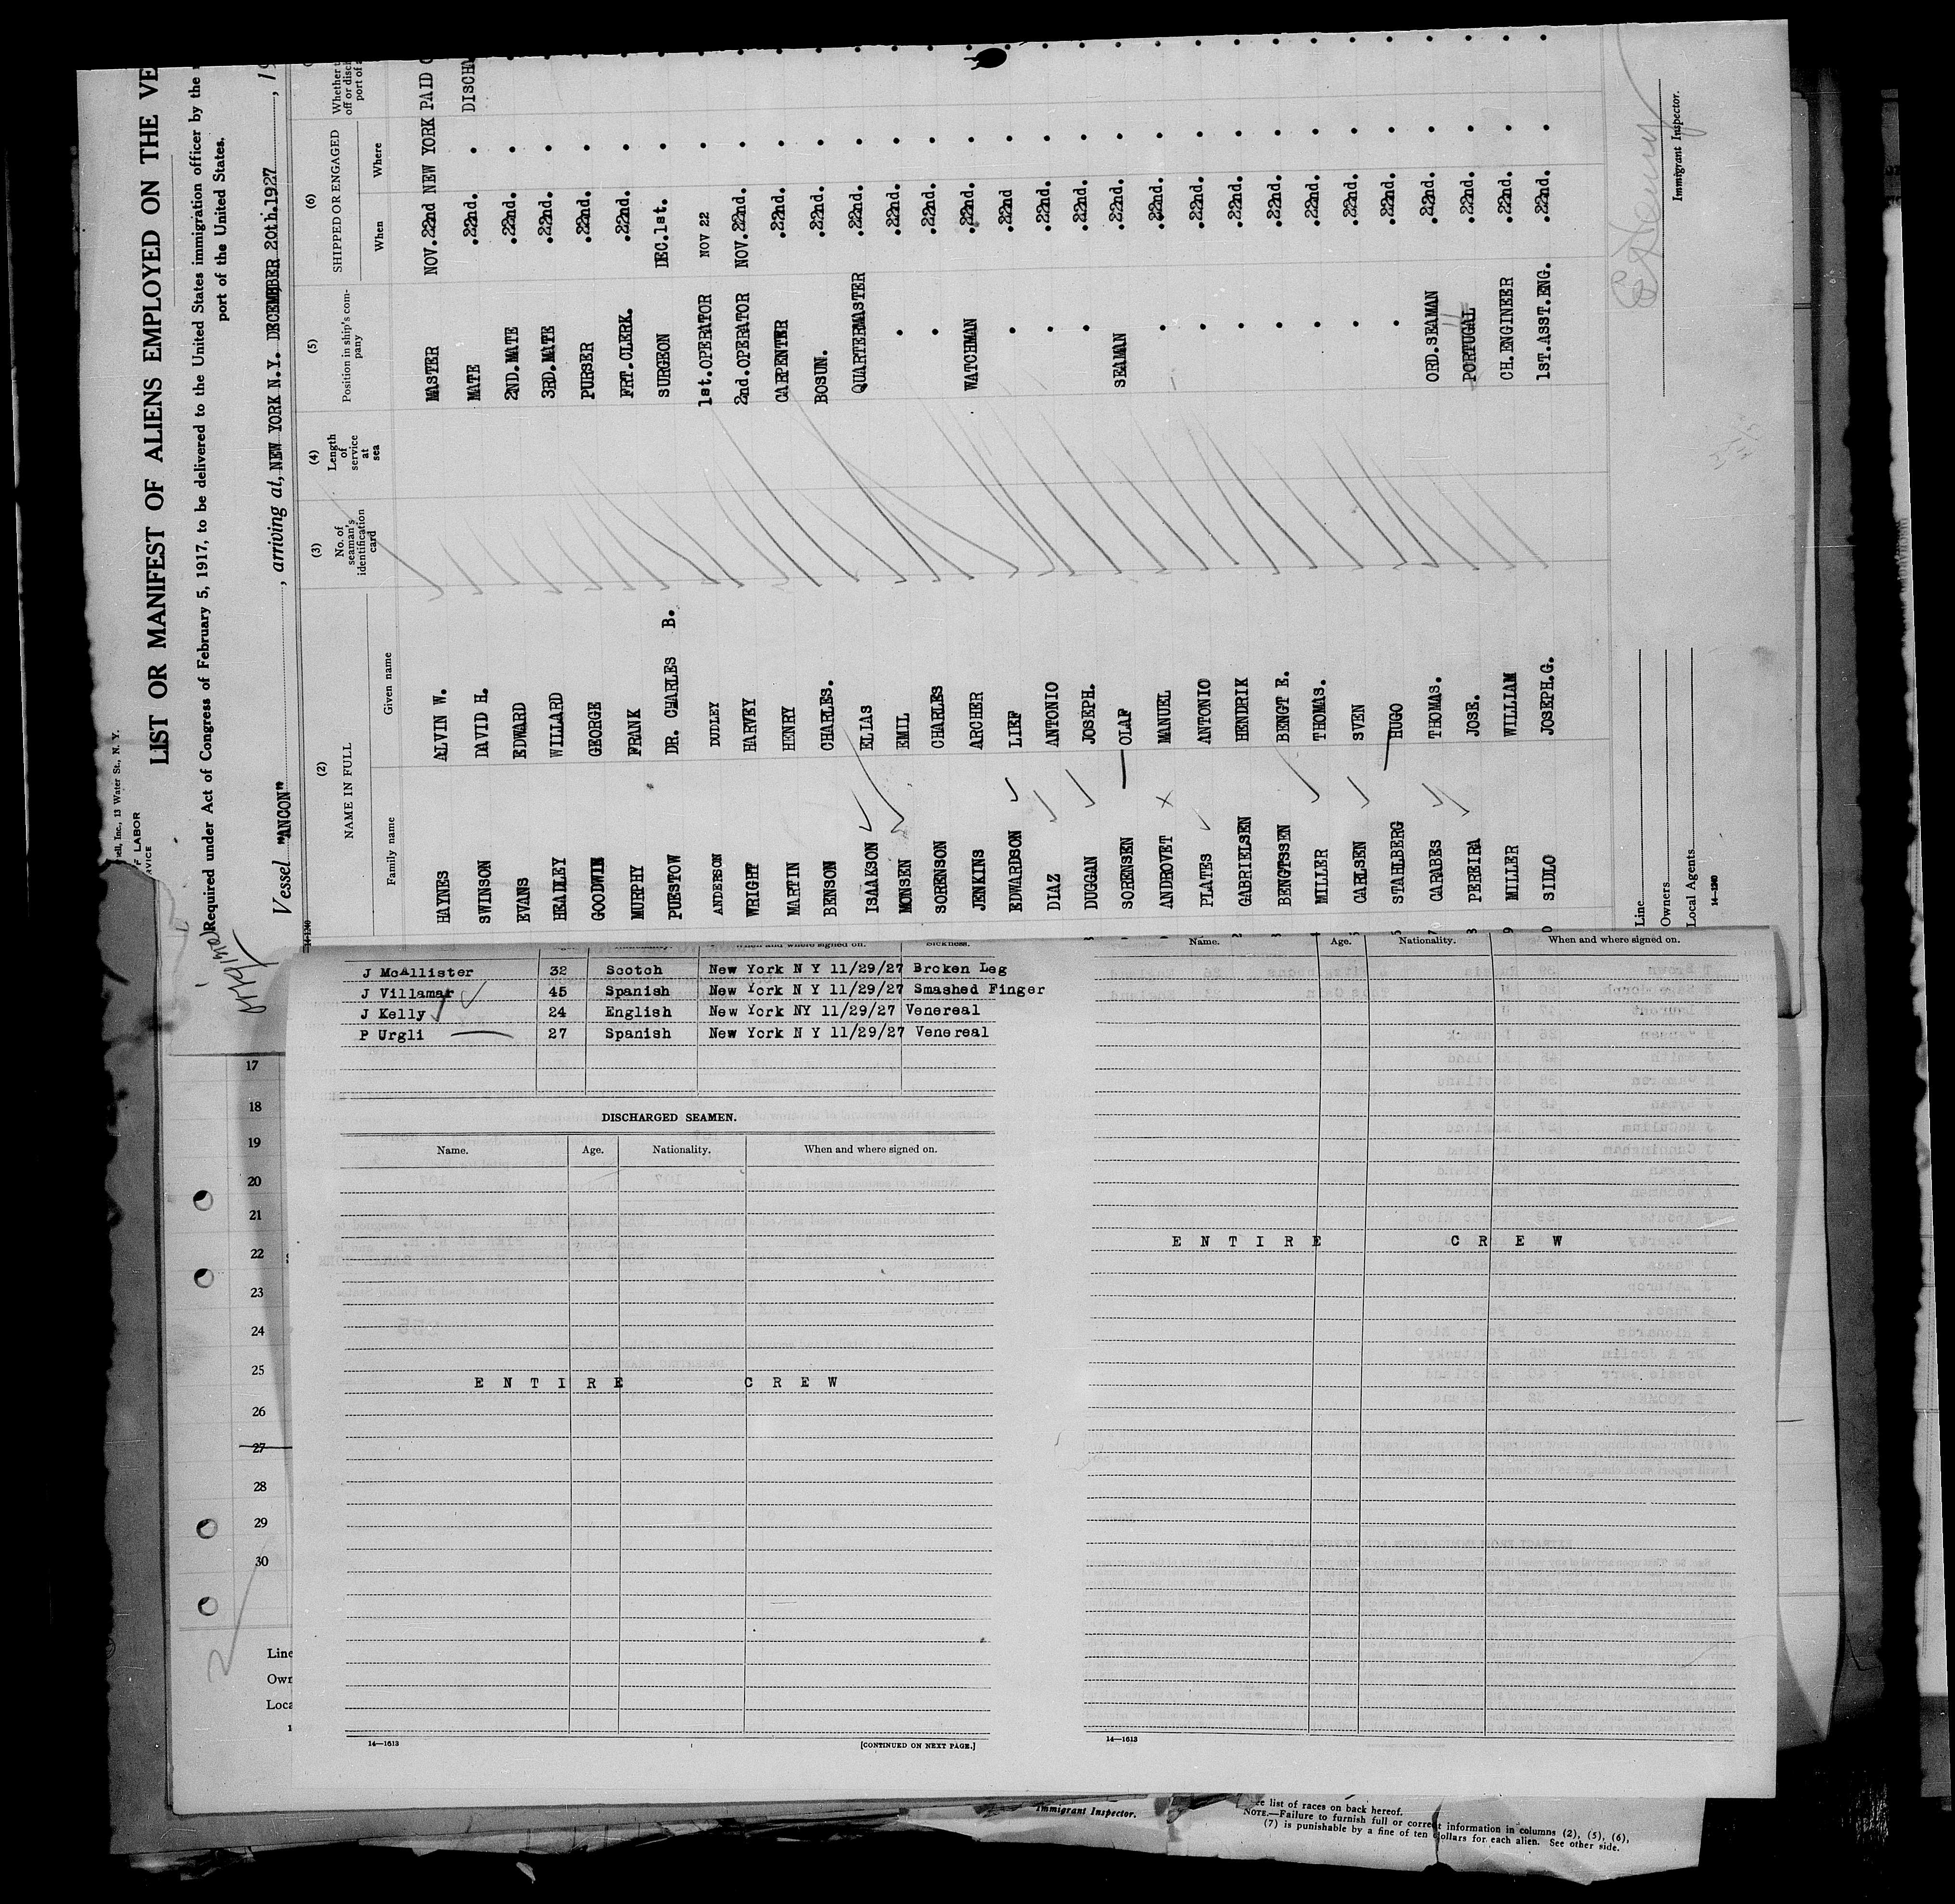 ell, Inc., 13 Water St., N. Y.
F LABOR
RVICE
LIST OR MANIFEST OF ALIENS EMPLOYED ON THE VE
Required under Act of Congress of February 5, 1917, to be delivered to the United States immigration officer by the
port of the United States.
Vessel "ANCON", arriving at, NEW YORK N.Y. DECEMBER 20th.1927, 19
original
14-1240
(2) (3) (4) (5) (6)
NAME IN FULL
Family name Given name
No. of seaman's identification card
Length of service at sea
Position in ship's company
SHIPPED OR ENGAGED
When Where
Whether
off or disch
port of a
HAYNES ALVIN W. MASTER NOV.22nd NEW YORK PAID O
SWINSON DAVID H. MATE .22nd. . DISCHA
EVANS EDWARD 2ND.MATE .22nd. . .
HEADLEY WILLARD 3RD.MATE .22nd. . .
GOODWIN GEORGE PURSER .22nd. . .
MURPHY FRANK FRT.CLERK. .22nd. . .
PUESTOW DR. CHARLES B. SURGEON DEC.1st. . .
ANDERSON DUDLEY 1st.OPERATOR NOV 22 . .
WRIGHT HARVEY 2nd.OPERATOR NOV.22nd. . .
MARTIN HENRY CARPENTER .22nd. . .
BENSON CHARLES. BOSUN. .22nd. . .
ISAAKSON ELIAS QUARTERMASTER .22nd. . .
MONSEN EMIL . .22nd. . .
SORENSON CHARLES . .22nd. . .
JENKINS ARCHER WATCHMAN .22nd. . .
EDWARDSON LIEF . .22nd . .
DIAZ ANTONIO . .22nd. . .
DUGGAN JOSEPH. . .22nd. . .
SORENSEN OLAF SEAMAN .22nd. . .
ANDROVET MANUEL . .22nd. . .
PLATES ANTONIO . .22nd. . .
GABRIELSEN HENDRIK . .22nd. . .
BENGTSSEN BENGT E. . .22nd. . .
MILLER THOMAS. . .22nd. . .
CARLSEN SVEN . .22nd. . .
STAHLBERG HUGO . .22nd. . .
CARABES THOMAS. ORD.SEAMAN .22nd. . .
PEREIRA JOSE. PORTUGAL .22nd. . .
MILLER WILLIAM CH.ENGINEER .22nd. . .
SIDLO JOSEPH.G. 1ST.ASST.ENG. .22nd. . .
Line
Owners
Local Agents
14-1240
Immigrant Inspector.
When and where signed on. Sickness.
J McAllister 32 Scotch New York N Y 11/29/27 Broken Leg
J Villamar 45 Spanish New York N Y 11/29/27 Smashed Finger
J Kelly 24 English New York NY 11/29/27 Venereal
P Urgli 27 Spanish New York N Y 11/29/27 Venereal
DISCHARGED SEAMEN.
Name. Age. Nationality. When and where signed on.
ENTIRE CREW
14—1613
[CONTINUED ON NEXT PAGE.]
Name. Age. Nationality. When and where signed on.
ENTIRE CREW
14—1613
17
18
19
20
21
22
23
24
25
26
27
28
29
30
Line
Own
Loca
Immigrant Inspector.
e list of races on back hereof.
NOTE.—Failure to furnish full or correct information in columns (2), (5), (6),
(7) is punishable by a fine of ten dollars for each alien. See other side.